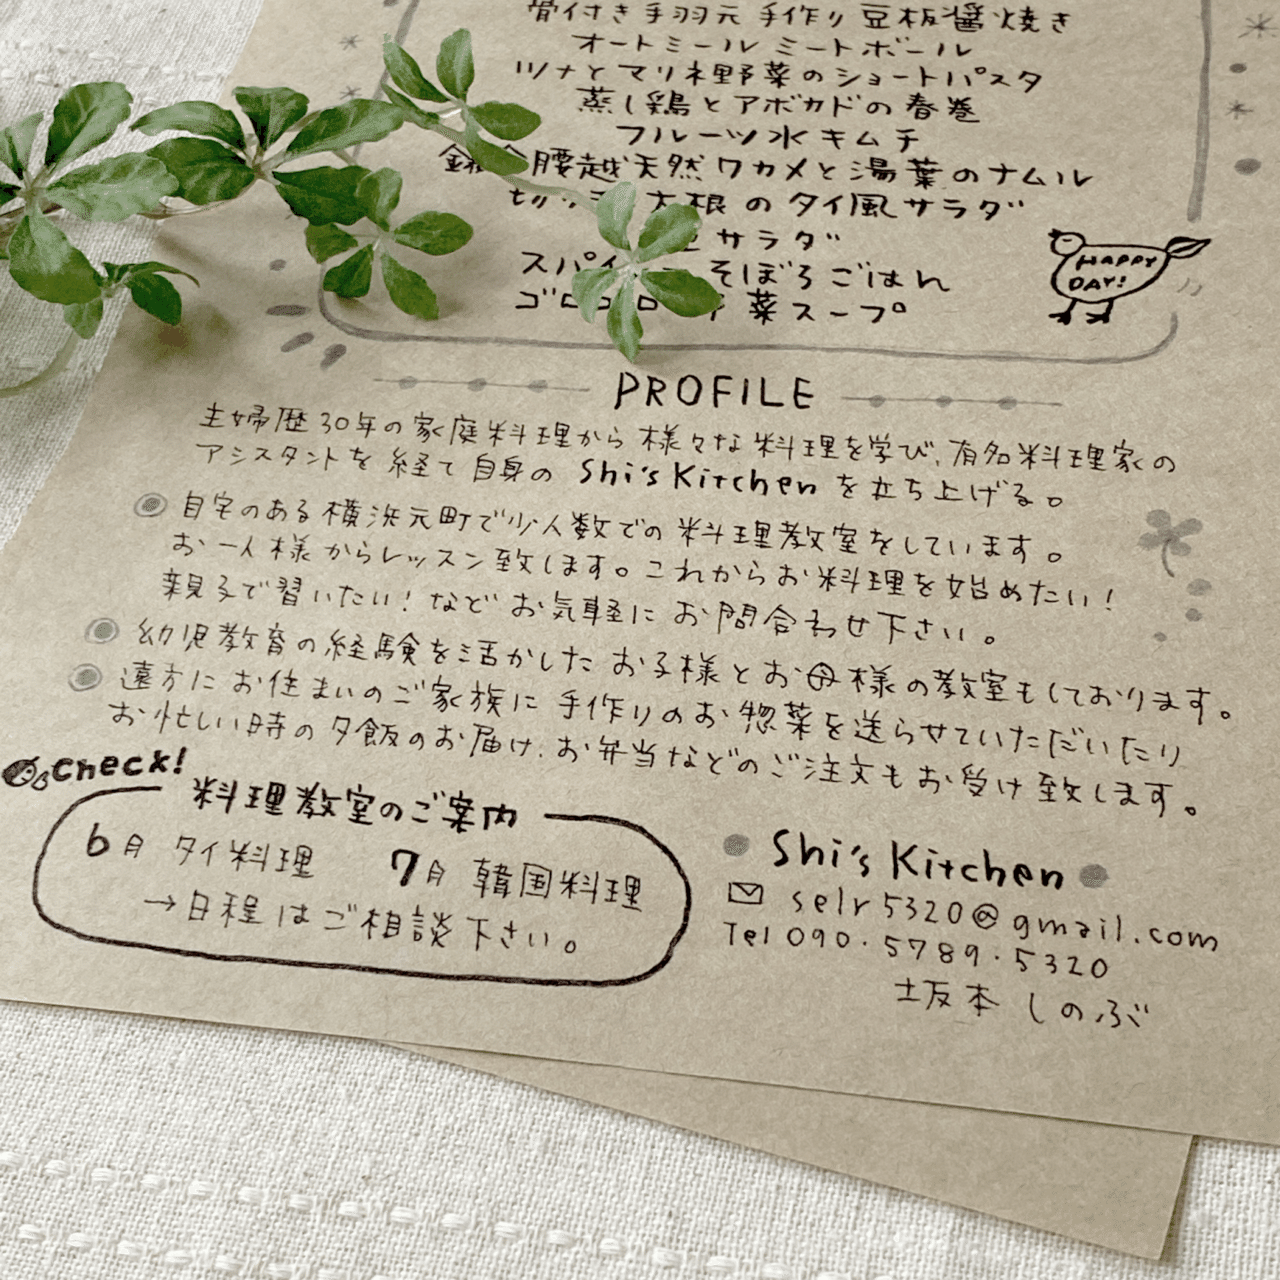 骨付き手羽元 手作り豆板醤焼き
オートミールミートボール
ツナとマリネ野菜のショートパスタ
蒸し鶏とアボカドの春巻
フルーツ水キムチ
腰越天然ワカメと湯葉のナムル
大根のタイ風サラダ
サラダ
スパイ そぼろごはん
ゴロゴロ 菜スープ
HAPPY
DAY!
PROFILE
主婦歴30年の家庭料理から様々な料理を学び、有名料理家の
アシスタントを経て自身の Shi's Kitchen を立ち上げる。
自宅のある横浜元町で少人数での料理教室をしています。
お一人様からレッスン致します。これからお料理を始めたい!
親子で習いたい!などお気軽にお問合わせ下さい。
幼児教育の経験を活かしたお子様とお母様の教室もしております。
遠方にお住まいのご家族に手作りのお惣菜を送らせていただいたり
お忙しい時の夕飯のお届け、お弁当などのご注文もお受け致します。
Check!
料理教室のご案内
6月 タイ料理 7月 韓国料理
→日程はご相談下さい。
Shi's Kitchen
selr5320@gmail.com
Tel 090・5789・5320
坂本 しのぶ